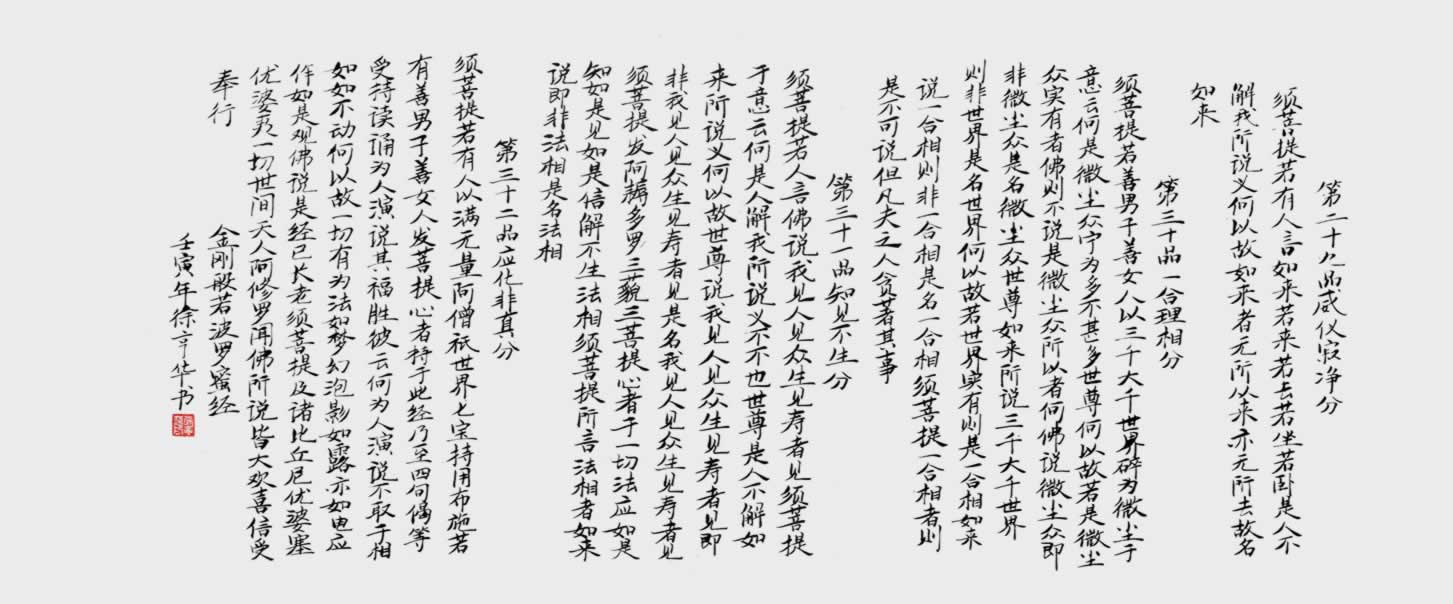 第二十九品威仪寂净分
须菩提若有人言如来若来若去若坐若卧是人不
解我所说义何以故如来者无所从来亦无所去故名
如来
第三十品一合理相分
须菩提若善男子善女人以三千大千世界碎为微尘于
意云何是微尘众宁为多不甚多世尊何以故若是微尘
众实有者佛则不说是微尘众所以者何佛说微尘众即
非微尘众是名微尘众世尊如来所说三千大千世界
则非世界是名世界何以故若世界实有则是一合相如来
说一合相则非一合相是名一合相须菩提一合相者则
是不可说但凡夫之人贪著其事
第三十一品知见不生分
须菩提若人言佛说我见人见众生见寿者见须菩提
于意云何是人解我所说义不不也世尊是人不解如
来所说义何以故世尊说我见人见众生见寿者见即
非我见人见众生见寿者见是名我见人见众生见寿者见
须菩提发阿耨多罗三藐三菩提心者于一切法应如是
知如是见如是信解不生法相须菩提所言法相者如来
说即非法相是名法相
第三十二品应化非真分
须菩提若有人以满无量阿僧祇世界七宝持用布施若
有善男子善女人发菩提心者持于此经乃至四句偈等
受持读诵为人演说其福胜彼云何为人演说不取于相
如如不动何以故一切有为法如梦幻泡影如露亦如电应
作如是观佛说是经已长老须菩提及诸比丘尼优婆塞
优婆夷一切世间天人阿修罗闻佛所说皆大欢喜信受
奉行
金刚般若波罗蜜经
壬寅年徐亨华书